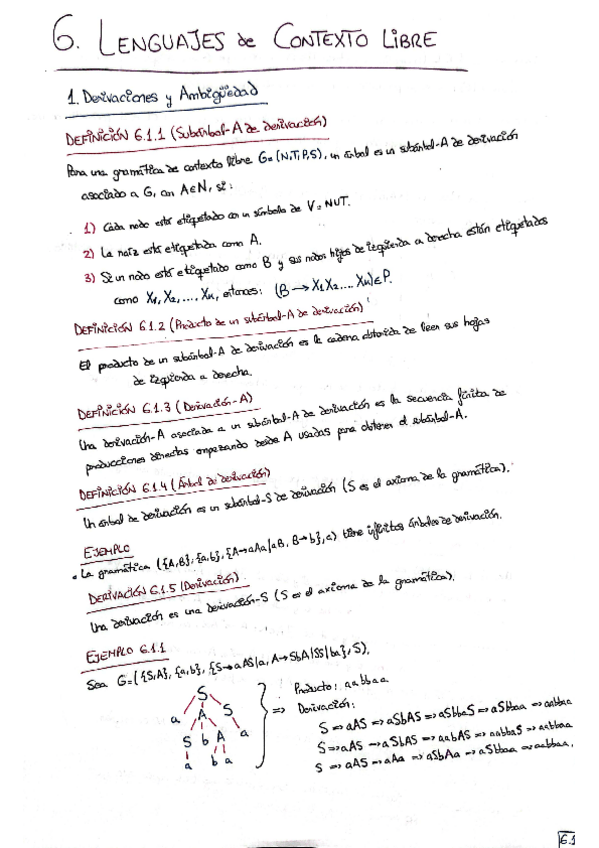 6. LENGUAJES de CONTEXTO LIBRE
1. Derivaciones y Ambigüedad
DEFINICIÓN 6.1.1 (Subárbol-A de derivación)
Para una gramática de contexto libre G=(N,T,P,S), un árbol es un subárbol-A de derivación
asociado a G, con A∈N, si:
1) Cada nodo está etiquetado con un símbolo de V=NUT.
2) La raíz está etiquetada como A.
3) Si un nodo está etiquetado como B y sus nodos hijos de izquierda a derecha están etiquetados
como X1, X2, ..., Xn, entonces: (B→X1X2...Xn)∈P.
DEFINICIÓN 6.1.2 (Producto de un subárbol-A de derivación)
El producto de un subárbol-A de derivación es la cadena obtenida de leer sus hojas
de izquierda a derecha.
DEFINICIÓN 6.1.3 (Derivación-A)
Una derivación-A asociada a un subárbol-A de derivación es la secuencia finita de
producciones directas empezando desde A usadas para obtener el subárbol-A.
DEFINICIÓN 6.1.4 (Árbol de derivación)
Un árbol de derivación es un subárbol-S de derivación (S es el axioma de la gramática).
EJEMPLO
• La gramática ({A,B},{a,b},{A→aAa|aB, B→b},a) tiene infinitos árboles de derivación.
DERIVACIÓN 6.1.5 (Derivación)
Una derivación es una derivación-S (S es el axioma de la gramática).
EJEMPLO 6.1.1
Sea G=({S,A},{a,b},{S→aAS|a, A→SbA|SS|ba},S).
S
a A S
S b A a
a b a
⇒ Producto: aabbaa
Derivación:
S⇒aAS⇒aSbAS⇒aSbbaS⇒aSbbaa⇒aabbaa
S⇒aAS⇒aSbAS⇒aabAS⇒aabbaS⇒aabbaa
S⇒aAS⇒aAa⇒aSbAa⇒aSbbaa⇒aabbaa.
6.1